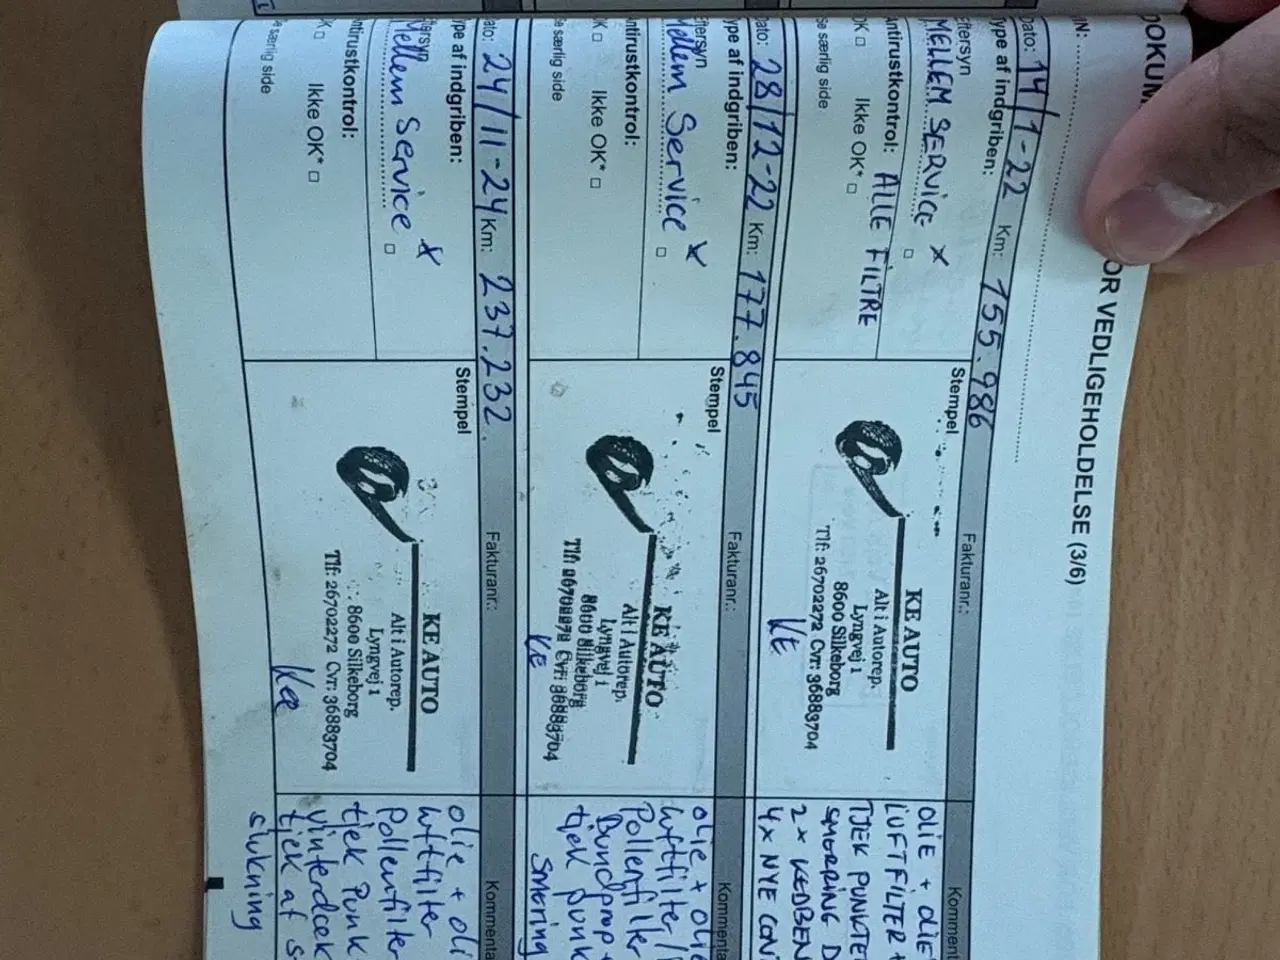 DOKUM
OR VEDLIGEHOLDELSE (3/6)
IN:
Dato: 14/1-22 Km: 155.986 Fakturanr.: Komment
ype af indgriben:
Eftersyn
MELLEM SERVICE x □
Antirustkontrol: ALLE FILTRE
OK □ Ikke OK* □
Se særlig side
Stempel
KE AUTO
Alt i Autorep.
Lyngvej 1
8600 Silkeborg
Tlf: 26702272 Cvr: 36883704
KE
OLIE + OLIE
LUFTFILTER +
TJEK PUNKTER
SMØRRING D
2 x
4 x NYE CON
Dato: 28/12-22 Km: 177.845 Fakturanr.: Kommenta
ype af indgriben:
ftersyn
Mellem Service x □
ntirustkontrol:
OK □ Ikke OK* □
Se særlig side
Stempel
KE AUTO
Alt i Autorep.
Lyngvej 1
8600 Silkeborg
Tlf: 26702272 Cvr: 36883704
KE
olie + olie
luftfilter/
Pollenfilter
Bundprop
tjek punk
Smøring
ato: 24/11-24 Km: 237.232. Fakturanr.: Kommenta
ype af indgriben:
ftersyn
Mellem Service x □
ntirustkontrol:
K □ Ikke OK* □
e særlig side
Stempel
KE AUTO
Alt i Autorep.
Lyngvej 1
8600 Silkeborg
Tlf: 26702272 Cvr: 36883704
Ke
olie + oli
luftfilter
Pollenfilter
tjek Punk
vinterdæk
tjek af s
slukning